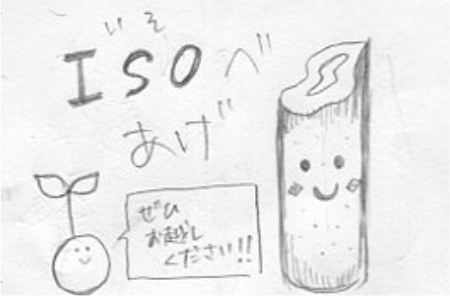 いそ
ISOべ
あげ
ぜひ
お越し
ください!!